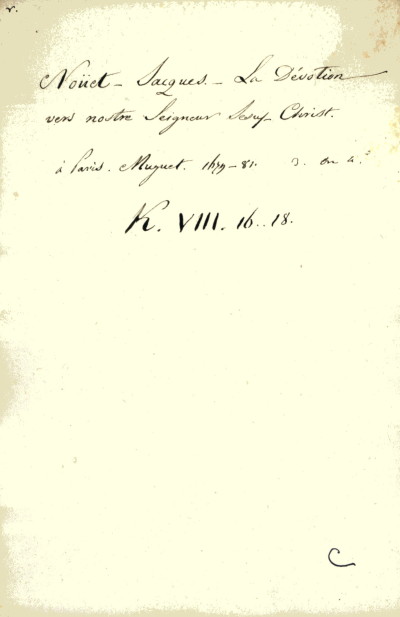 r.
Noüet - Jacques. - La Dévotion
vers nostre Seigneur Jesus Christ.
à Paris. Muguet. 1679-81. 3. en 4.º
K. VIII. 16..18.
C